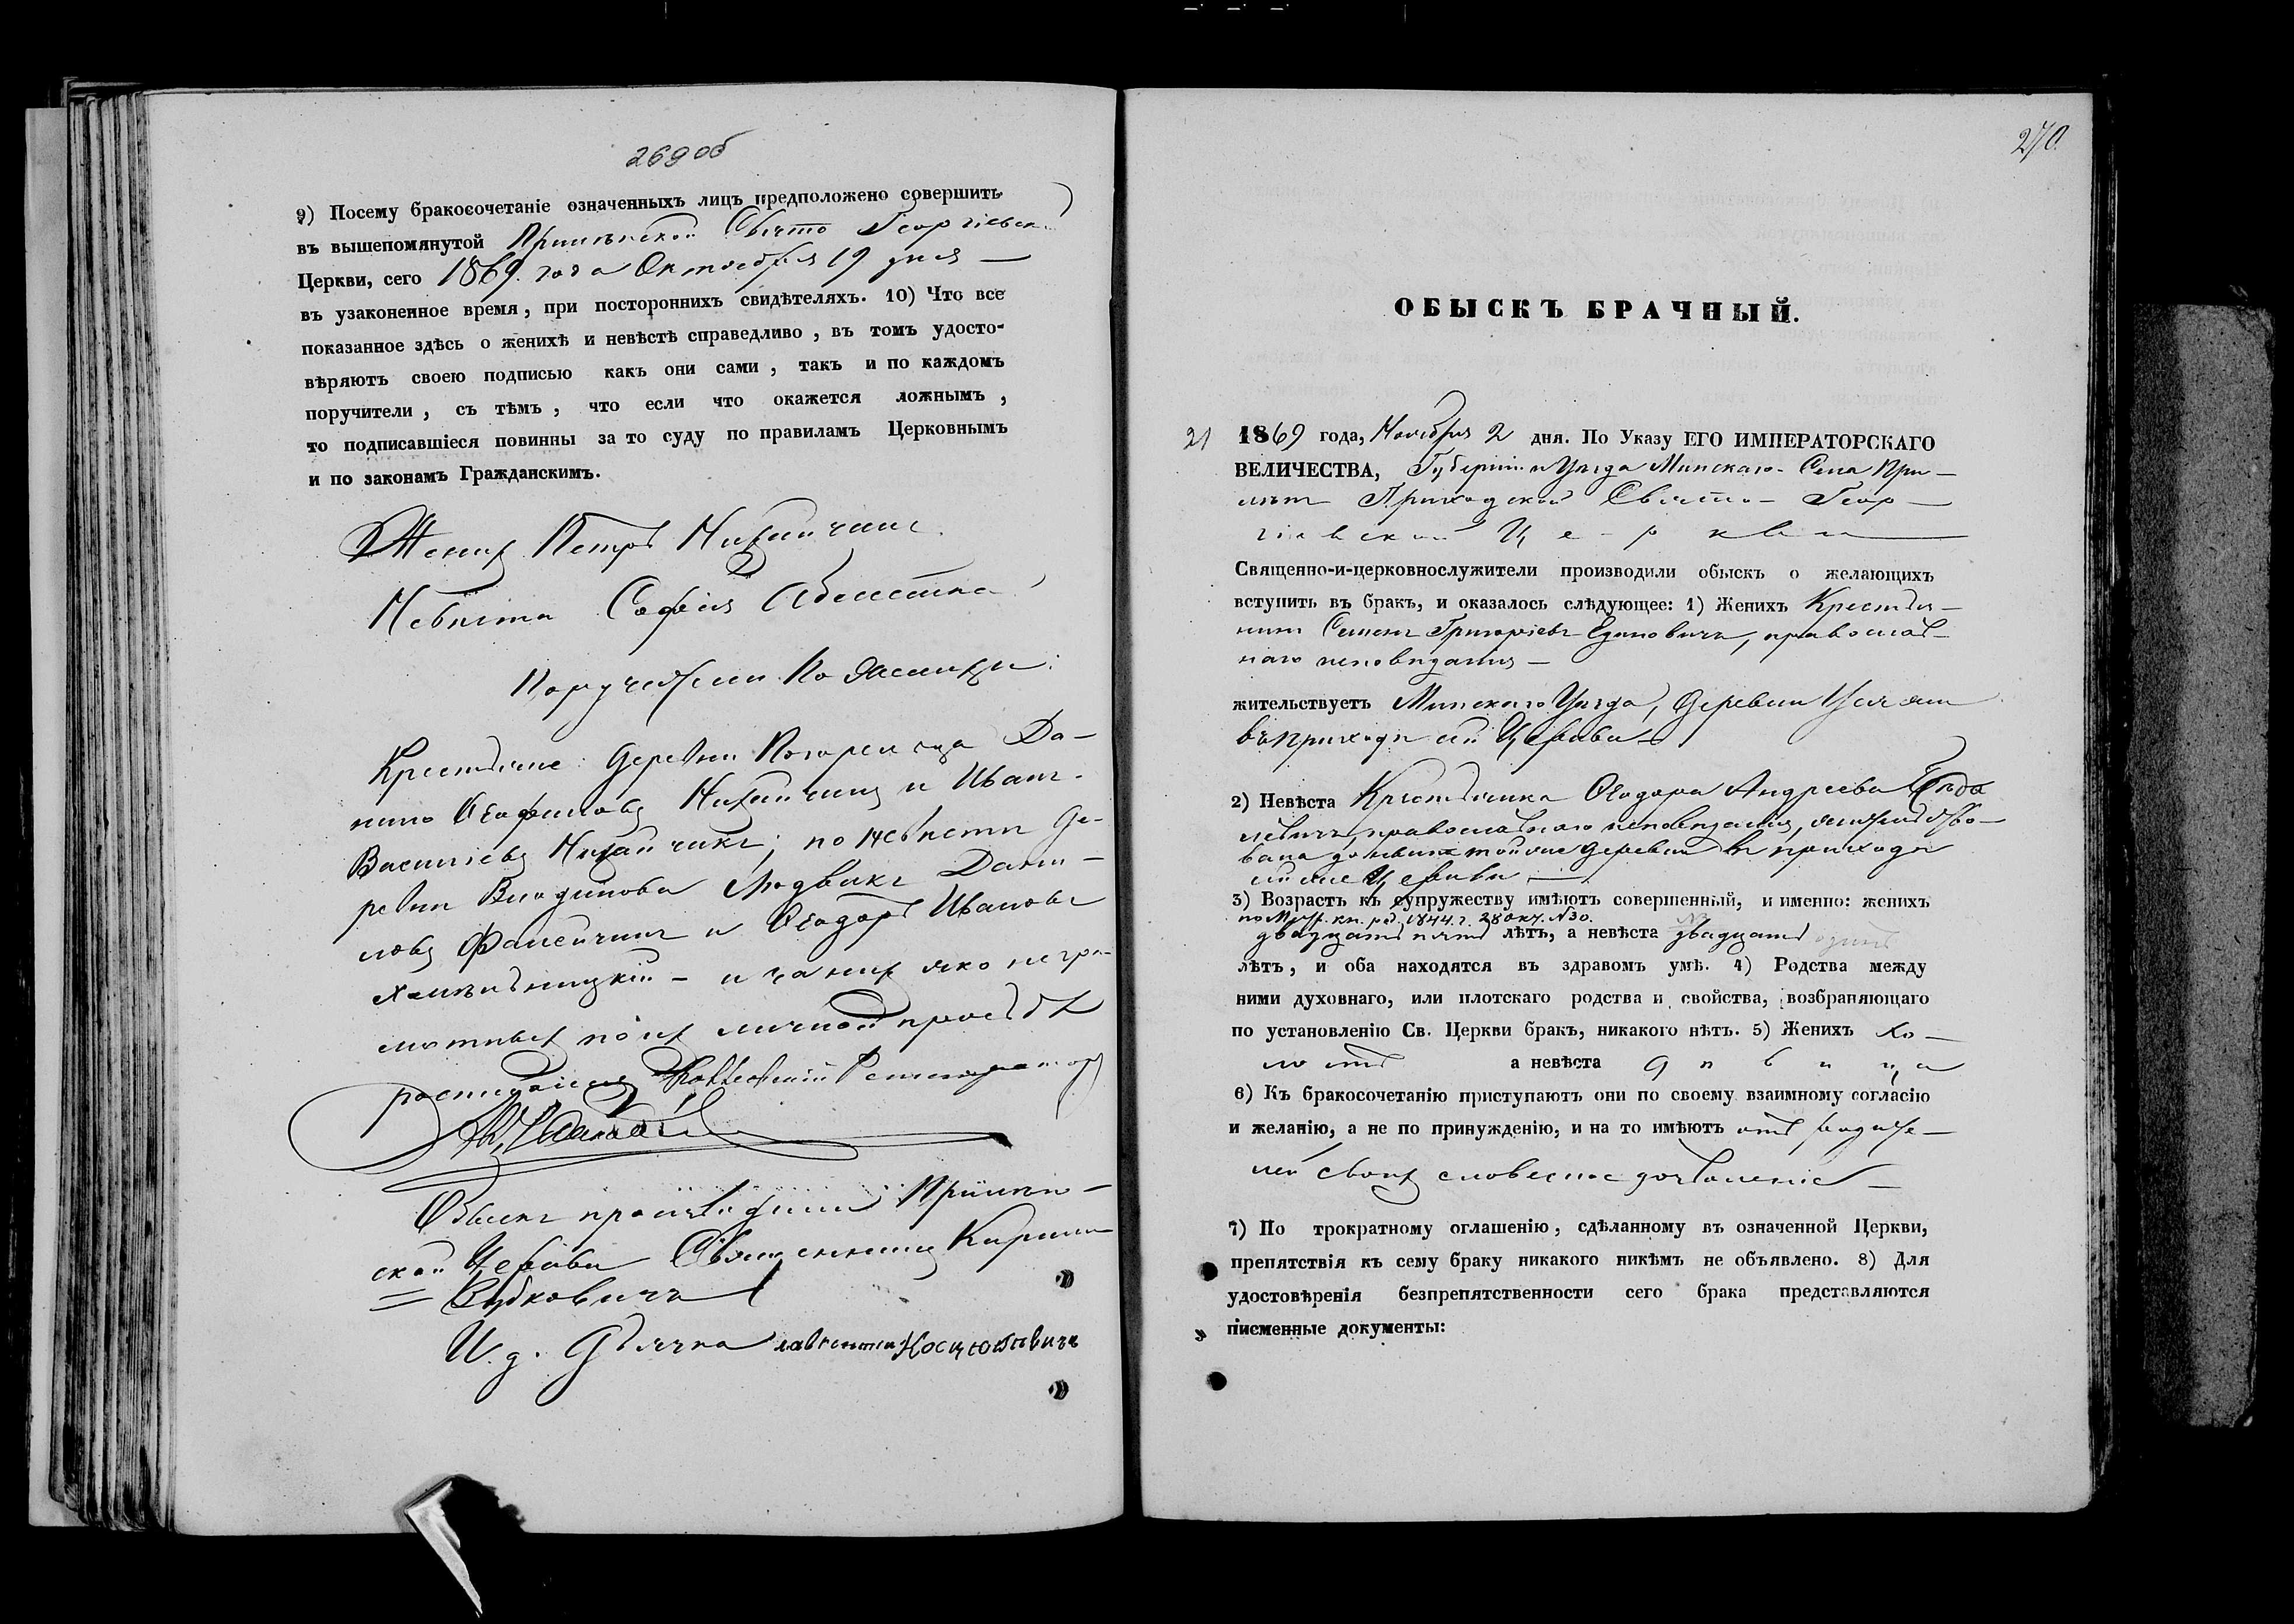 269 об
9) Посему бракосочетаніе означенныхъ лицъ предположено совершить
въ вышепомянутой Прилѣпской Свято Георгіевск.
Церкви, сего 1869. года Октября 19 дня —
въ узаконенное время, при постороннихъ свидѣтеляхъ. 10) Что все
показанное здѣсь о женихѣ и невѣстѣ справедливо, въ томъ удосто-
вѣряютъ своею подписью какъ они сами, такъ и по каждомъ
поручители, съ тѣмъ, что если что окажется ложнымъ,
то подписавшіеся повинны за то суду по правиламъ Церковнымъ
и по законамъ Гражданскимъ.
Женихъ Петръ
Невѣста Софія
Поручители По Женихѣ:
Крестьяне: деревни Да-
нило Ѳеофиловъ и Иванъ
Василіевъ по Невѣстѣ де-
ревни Людвикъ Дани-
ловъ и Ѳеодоръ Ивановъ
— и за нихъ яко негра-
мотныхъ по ихъ личной просьбѣ
росписался Коллежскій Регистраторъ
Обыскъ производили Прилѣп-
ской Церкви Священникъ Кирилл
И. д. Дьячка
270.
ОБЫСКЪ БРАЧНЫЙ.
21 1869 года, Ноября 2 дня. По Указу ЕГО ИМПЕРАТОРСКАГО
ВЕЛИЧЕСТВА, Губерніи и Уѣзда Минскаго Села При-
лѣпъ Приходской Свято-Геор-
гіевской Церкви
Священно-и-церковнослужители производили обыскъ о желающихъ
вступить въ бракъ, и оказалось слѣдующее: 1) Женихъ Крестья-
нинъ Семенъ Григоріевъ Едиповичъ, православ-
наго исповѣданія —
жительствуетъ Минскаго Уѣзда, деревни
въ приходѣ сей Церкви —
2) Невѣста Крестьянка Ѳеодора Андреева
православнаго исповѣданія, жительство-
вала до нынѣ той же деревни въ приходѣ
сей же Церкви —
3) Возрастъ къ супружеству имѣютъ совершенный, и именно: женихъ
по Метр. кн. 1844. г. 28 Окт. №30.
двадцать пять лѣтъ, а невѣста двадцать одинъ
лѣтъ, и оба находятся въ здравомъ умѣ. 4) Родства между
ними духовнаго, или плотскаго родства и свойства, возбраняющаго
по установленію Св. Церкви бракъ, никакого нѣтъ. 5) Женихъ хо-
лостъ а невѣста дѣвица
6) Къ бракосочетанію приступаютъ они по своему взаимному согласію
и желанію, а не по принужденію, и на то имѣютъ отъ родите-
лей своихъ словесное дозволеніе —
7) По трократному оглашенію, сдѣланному въ означенной Церкви,
препятствія къ сему браку никакого никѣмъ не объявлено. 8) Для
удостовѣренія безпрепятственности сего брака представляются
писменные документы: